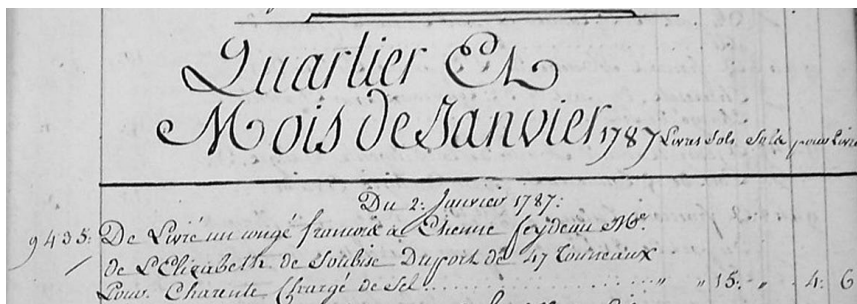 Quartier Et
Mois de Janvier 1787 Livres Sols Sols pour Livre
Du 2. Janvier 1787.
9435. De Livré un congé francois a Etienne feydeau Me.
de L'Elizabeth de Soubise Du port de 47 Tonneaux
Pour Charente Chargé de Sel .......... " " 15. " . 4. 6